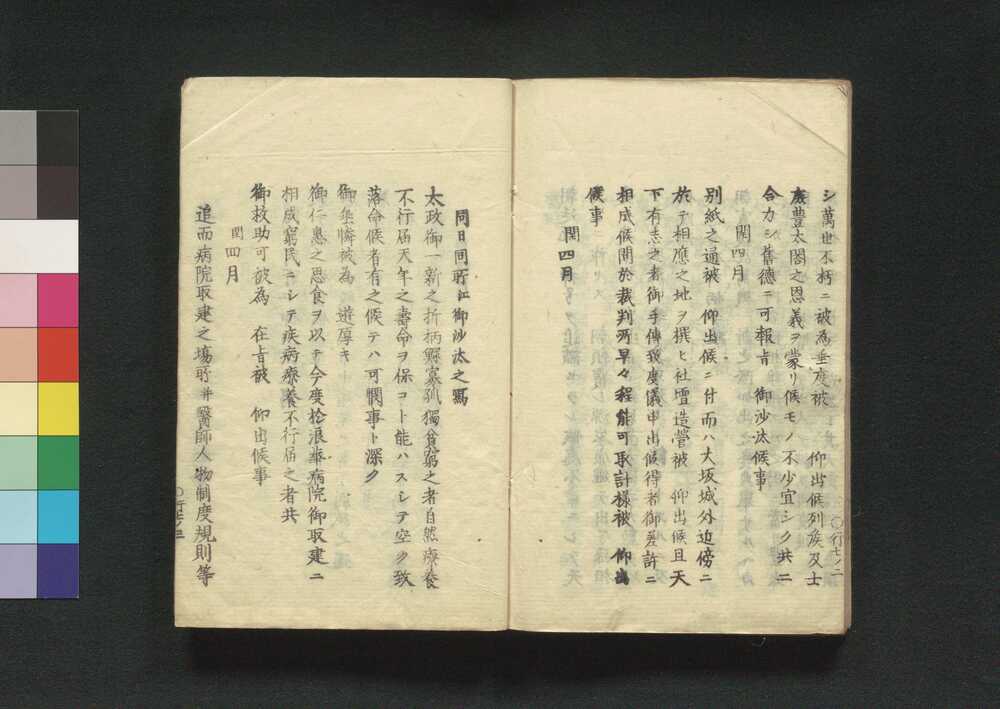 シ萬世不朽ニ被為垂度被　仰出候列侯及士
庶豊太閤之恩義ヲ蒙リ候モノ不少宜シク共ニ
合力シ舊德ニ可報旨　御沙汰候事
閏四月
別紙之通被　仰出候ニ付而ハ大坂城外近傍ニ
於テ相應之地ヲ撰ヒ社壇造營被　仰出候且天
下有志之者御手傳致度儀申出候得者御差許ニ
相成候間於裁判所早々程能可取計樣被　仰出
候事
閏四月
同日同所江御沙汰之寫
太政御一新之折柄鰥寡孤獨貧窮之者自然療養
不行届天年之壽命ヲ保コト能ハスシテ空ク致
落命候者有之候テハ可憫事ト深ク
御垂憐被為　遊厚キ
御仁惠之思食ヲ以テ今度於浪華病院御取建ニ
相成窮民ニシテ疾病療養不行届之者共
御救助可被為　在旨被　仰出候事
閏四月
追而病院取建之場所并醫師人物制度規則等
〇行七ノ二
〇行七ノ三